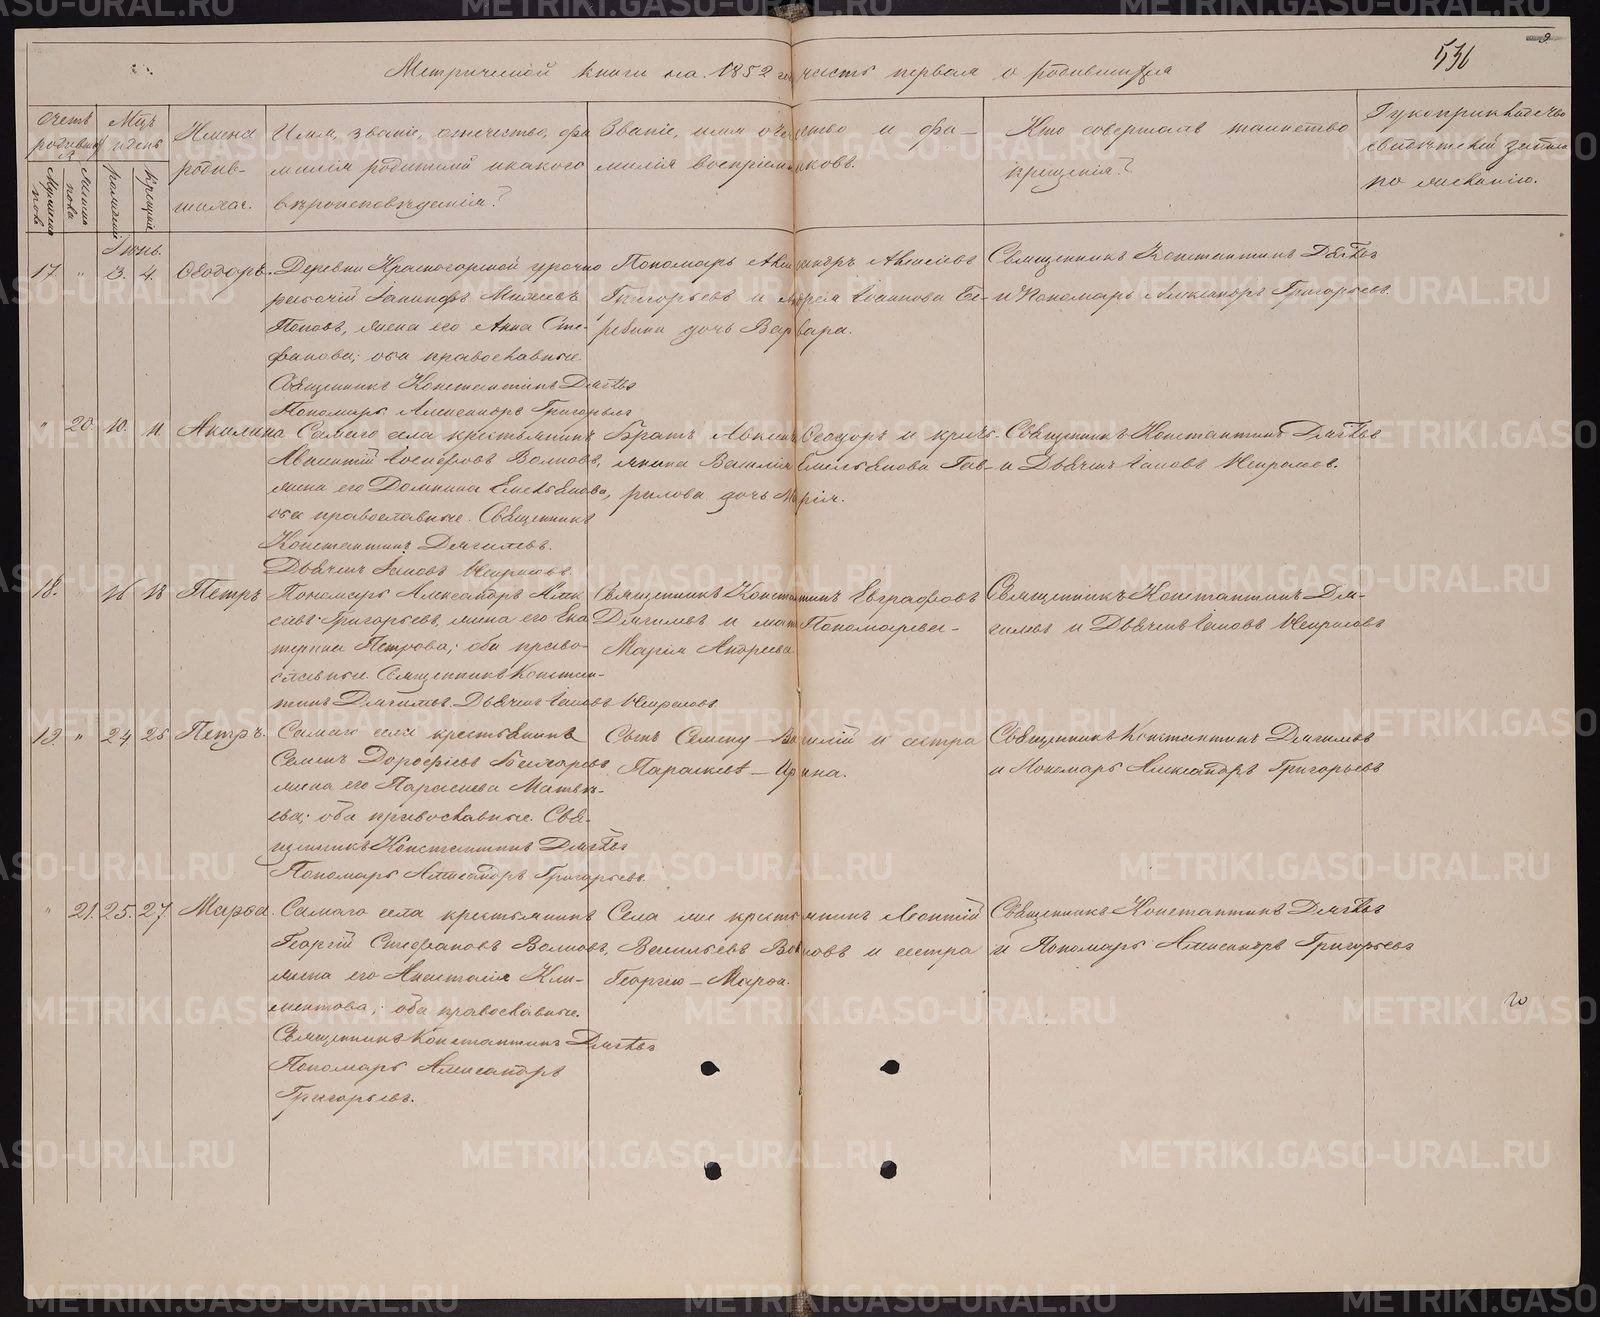 536
Метрической книги на 1852 годъ часть первая о родившихся
Счетъ родившихся
Мѣсяцъ и день
Имена родив-
шихся.
Имя, званіе, отечество, фа-
милія родителей и какого
вѣроисповѣданія?
Званіе, имя отечество и фа-
милія воспріемниковъ.
Кто совершалъ таинство
крещенія?
Рукоприкладство
свидѣтелей записи
по желанію.
Мужеска пола
Женска пола
рожденія
крещенія
Іюнь.
17. " 3. 4. Ѳеодоръ.
Деревни Красногорской урочно
рабочій
Поповъ, жена его Анна Сте-
фанова; оба православные
Священникъ Константинъ Дягилевъ
Пономарь Александръ Григорьевъ
Пономарь Александръ Алексѣевъ
Григорьевъ и Іоаннова
дочь Варвара.
Священникъ Константинъ Дягилевъ
и Пономарь Александръ Григорьевъ.
" 20. 10. 11 Акилина
Самаго села крестьянинъ
Іосифовъ Волковъ,
жена его Домника Емельянова,
оба православные. Священникъ
Константинъ Дягилевъ.
Дьячекъ Іаковъ Некрасовъ
Братъ Ѳеодоръ и кресть-
янина Василія Емельянова Гав-
рилова дочь Марія.
Священникъ Константинъ Дягилевъ
и Дьячекъ Іаковъ Некрасов.
18. " 16 18 Петръ
Пономарь Александръ Алек-
сѣевъ Григорьевъ, жена его Ека-
терина Петрова; оба право-
славные Священникъ Констан-
тинъ Дягилевъ Дьячекъ Іаковъ Некрасовъ
Священникъ Константинъ Евграфовъ
Дягилевъ и мать Пономарева-
Марія Андреева
Священникъ Константинъ Дя-
гилевъ и Дьячекъ Іаковъ Некрасовъ
19. " 24 25 Петръ.
Самаго села крестьянинъ
Семенъ Дороѳѣевъ
жена его Параскева Матвѣ-
ева; оба православные. Свя-
щенникъ Константинъ Дягилевъ
Пономарь Александръ Григорьевъ.
Сынъ Семену - Василій и сестра
Параскевѣ - Ирина.
Священникъ Константинъ Дягилевъ
и Пономарь Александръ Григорьевъ
" 21. 25. 27. Марѳа.
Самаго села крестьянинъ
Георгій Стефановъ Волковъ,
жена его Анастасія Кли-
ментова; оба православные.
Священникъ Константинъ Дягилевъ
Пономарь Александръ
Григорьевъ.
Села же крестьянинъ Леонтій
Васильевъ Волковъ и сестра
Георгію - Марѳа.
Священникъ Константинъ Дягилевъ
и Пономарь Александръ Григорьевъ
METRIKI.GASO-URAL.RU